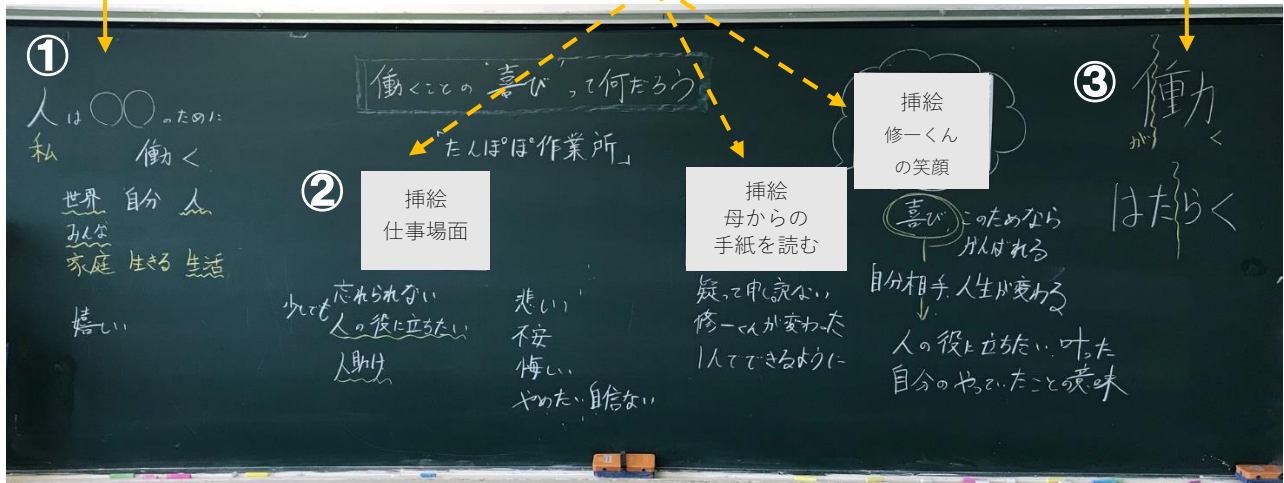 ①
人は○○のために
私 働く
世界 自分 人
みんな
家庭 生きる 生活
嬉しい
働くことの"喜び"って何だろう
「たんぽぽ作業所」
②
挿絵
仕事場面
忘れられない
少しでも人の役に立ちたい
人助け
悲しい
不安
悔しい
やめたい 自信ない
挿絵
母からの
手紙を読む
疑って申し訳ない
修一くんが変わった
1人でできるように
挿絵
修一くん
の笑顔
喜び このためなら
がんばれる
自分相手、人生が変わる
人の役に立ちたい 叶った
自分のやっていたことの意味
③
働く
が
はたらく